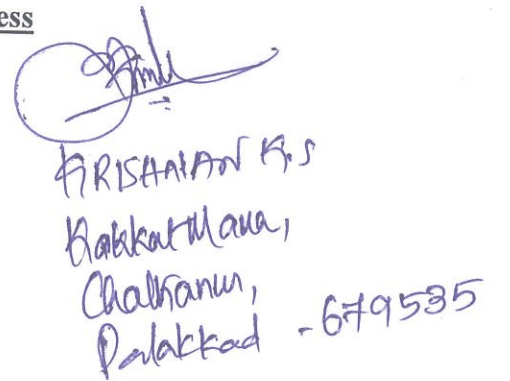 ess
KRISHNAN K.S
Kakkat Mana,
Chalisanur,
Palakkad - 679535